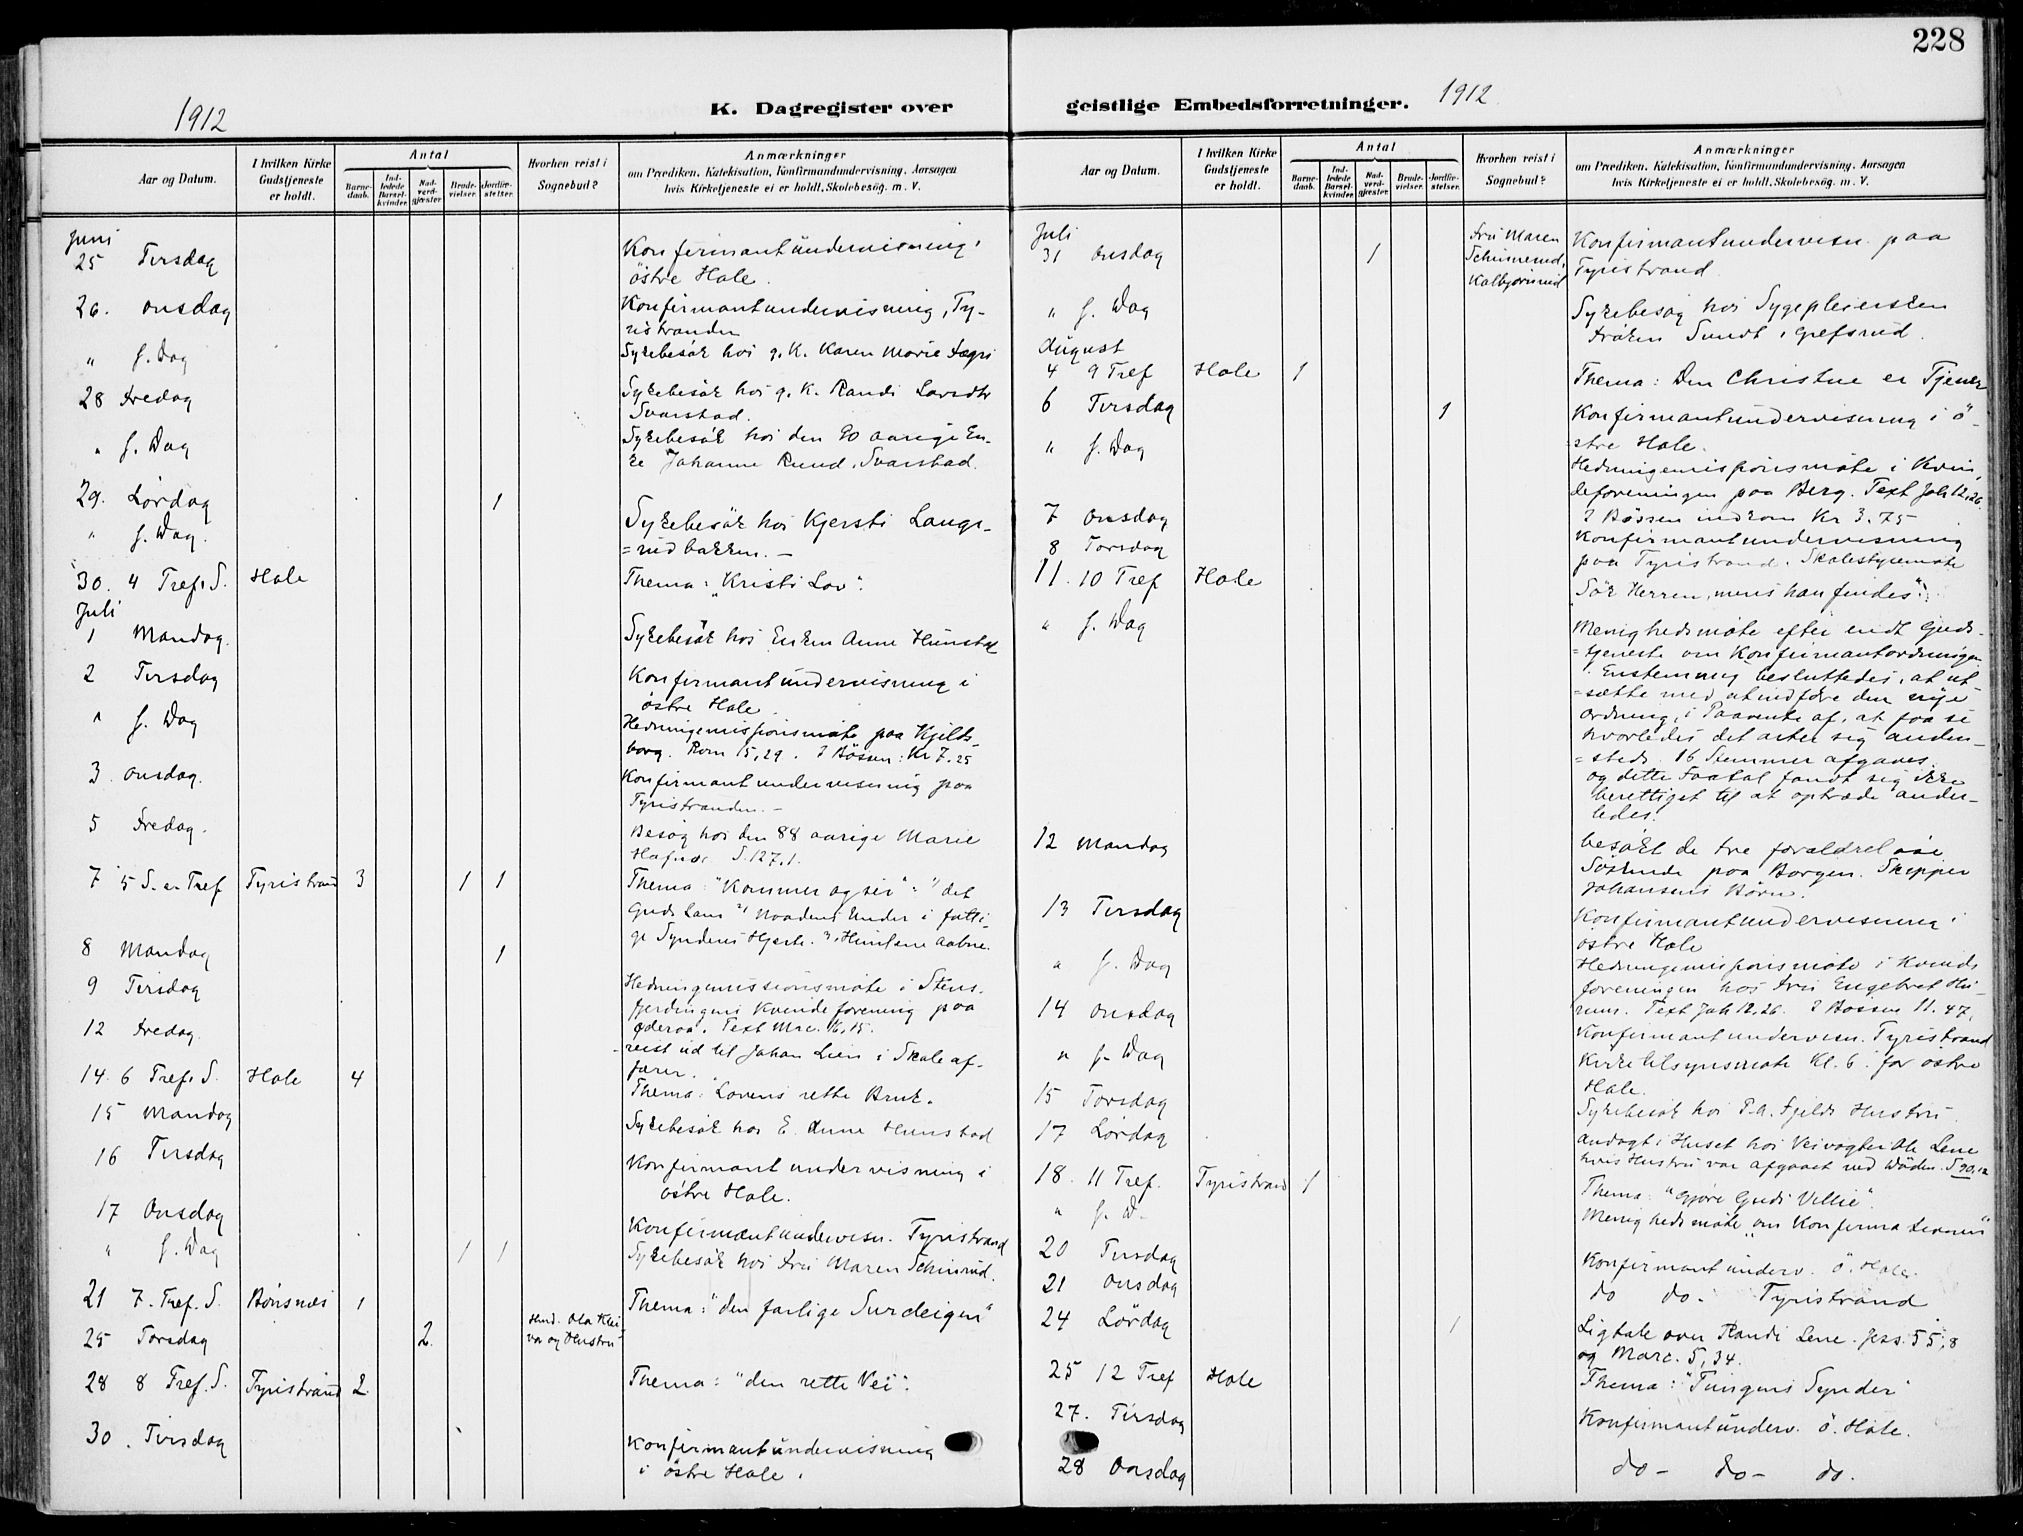 228
1912
K. Dagregister over
geistlige Embedsforretninger.
1912
Aar og Datum.
I hvilken Kirke Gudstjeneste er holdt.
Antal
Barnedaab.
Indledede Barselkvinder.
Nadverdgjæster.
Brudevielser.
Jordfæstelser.
Hvorhen reist i Sognebud?
Anmærkninger
om Prædiken, Katekisation, Konfirmandundervisning, Aarsagen
hvis Kirketjeneste ei er holdt, Skolebesøg. m. V.
Juni
25 Tirsdag Konfirmantundervisning i
östre Hole.
26. onsdag Konfirmantundervisning, Ty-
ristranden
" s. Dag Sykebesök hos g. K. Karen Marie Fegri
28 Fredag Sykebesök hos g. K. Randi Larsdtr
Svarstad.
" s. Dag Sykebesök hos den 90 aarige En-
ke Johanne Rund, Svarstad.
29. Lördag 1
" s. Dag. Sykebesök hos Kjersti Langs-
=rudbakken. -
30. 4 Tref. S. Hole Thema: "Kristi Lov".
Juli
1 Mandag. Sykebesök hos Enken Anne Hunstad
2 Tirsdag Konfirmantundervisning i
östre Hole.
" s. Dag Hedningemissionsmöte paa Kjelts-
borg. Rom 15,29. I Bössen: Kr 7.25
3 onsdag. Konfirmantundervisning paa
Tyristranden. -
5 Fredag. Besøg hos den 88 aarige Marie
Hafnor S. 127,1.
7 5 S. e. Tref Tyristrand 3 1 1 Thema: "Kommer og sei": "det
Guds Lam 2, Naadens Under i fatti-
ge Synderes Hjerte. 3, Himlene aabne.
8 Mandag 1
9 Tirsdag Hedningemissionsmöte i Stens-
fjerdingens Kvindeforening paa
Oderaa. Text Mrc. 16,15.
12 Fredag. reist ud til Johan Lien i Skoleaf-
færer.
14. 6 Tref. S. Hole 4 Thema: Lovens rette Bruk.
15 Mandag Sykebesök hos E. Anne Hunstad
16 Tirsdag Konfirmantundervisning i
östre Hole.
17 Onsdag Konfirmantundervisn. Tyristrand
" s. Dag 1 1 Sykebesök hos Fru Maren Schinrud.
21 7. Tref. S. Bönsnes 1 Thema: "den farlige Surdeigen"
25 Torsdag 2 Hmd. Ola Klei-
va og Hustru
28 8 Tref. S. Tyristrand 2 Thema: "den rette Vei".
30. Tirsdag Konfirmantundervisning
i östre Hole.
Aar og Datum.
I hvilken Kirke Gudstjeneste er holdt.
Antal
Barnedaab.
Indledede Barselkvinder.
Nadverdgjæster.
Brudevielser.
Jordfæstelser.
Hvorhen reist i Sognebud?
Anmærkninger
om Prædiken, Katekisation, Konfirmandundervisning, Aarsagen
hvis Kirketjeneste ei er holdt, Skolebesøg. m. V.
Juli
31 onsdag 1 Fru Maren Konfirmantundervisn. paa
Tyristrand.
" s. Dag Sykebesøg hos Sygepleiersken
Frøken Sundt i Grefsrud.
August
4 9 Tref Hole 1 Thema: Den Christne er Tjener
6 Tirsdag 1 Konfirmantundervisning i ö-
stre Hole.
" s. Dag Hedningemissionsmöte i Kvin-
deforeningen paa Berg. Text Joh 12,26
I Bössen indkom Kr 3.75
7 onsdag Konfirmantundervisning
8 Torsdag paa Tyristrand. Skolestyremöte
11. 10 Tref Hole "Sök Herren, mens han findes".
" s. Dag Menighedsmöte efter endt Guds-
=tjeneste om Konfirmantordningen
Enstemmig besluttedes, at ut
=sætte med at indføre den nye
Ordning, i Paavente af, at faa se
hvorledes det arter sig anden-
=steds. 16 Stemmer afgaves
og dette Faatal fandt sig ikke
berettiget til at optræde ander-
ledes.
12 Mandag besökt de tre forældreløse
Söskende paa Borgen. Skipper
Johansens Börn.
13 Tirsdag Konfirmantundervisning i
östre Hole
" s. Dag Hedningemissionsmöte i Kvinde
foreningen hos Fru Engebret Hu-
rum. Text Joh 12,26. I Bössen 11.47.
14 onsdag Konfirmantundervisn. Tyristrand
" s. Dag Kirketilsynsmöte Kl. 6 for östre
Hole.
15 Torsdag Sykebesök hos P. A. Fjelds Hustru
17 Lördag Andagt i Huset hos Veivogter Ole Lene
hvis Hustru var afgaaet ved Döden. S 90,12
18. 11 Tref. Tyristrand 1 Thema: "Gjøre Guds Villie".
" s. D. Menighedsmöte om "Konfirmationen"
20 Tirsdag Konfirmantunderv. ö. Hole.
21 onsdag do do. Tyristrand
24 Lördag 1 Ligtale over Randi Lene. Jes. 55,8
og Marc. 5,34.
25 12 Tref Hole Thema: "Tungens Synder"
27. Tirsdag Konfirmantunderv. ö. Hole.
28 Onsdag do - do - do.